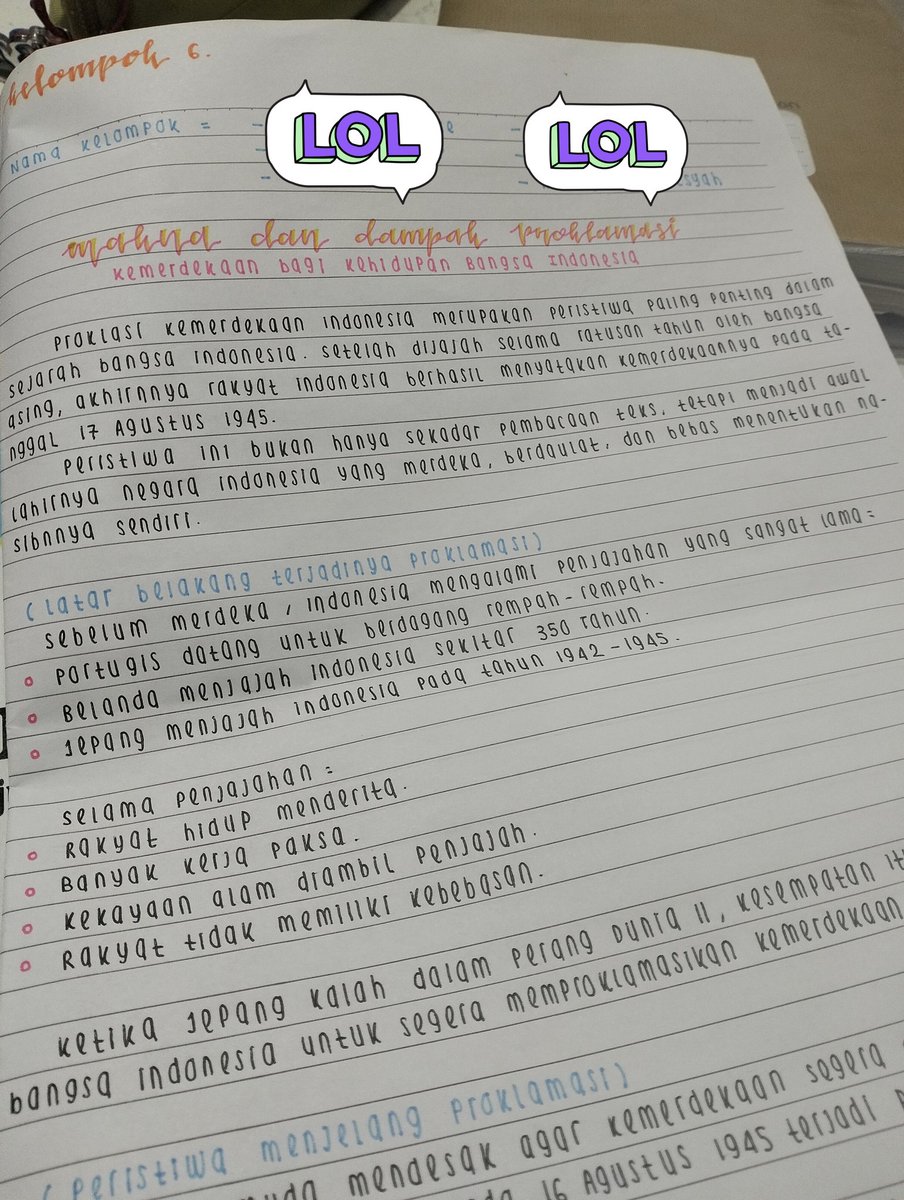 kelompok 6.
Nama kelompok = -
LOL
LOL
- e -
-
- - syah
makna dan dampak proklamasi
kemerdekaan bagi kehidupan Bangsa Indonesia
Proklasi kemerdekaan Indonesia merupakan peristiwa paling penting dalam
sejarah bangsa Indonesia. setelah dijajah selama ratusan tahun oleh bangsa
asing, akhirnnya rakyat Indonesia berhasil menyatakan kemerdekaannya pada ta-
nggal 17 Agustus 1945.
Peristiwa ini bukan hanya sekadar pembacaan teks, tetapi menjadi awal
lahirnya negara Indonesia yang merdeka, berdaulat, dan bebas menentukan na-
sibnnya sendiri.
(latar belakang terjadinya proklamasi)
Sebelum merdeka, Indonesia mengalami penjajahan yang sangat lama =
Portugis datang untuk berdagang rempah-rempah.
Belanda menjajah Indonesia sekitar 350 tahun.
Jepang menjajah Indonesia pada tahun 1942-1945.
Selama penjajahan =
Rakyat hidup menderita.
Banyak kerja paksa.
Kekayaan alam diambil penjajah.
Rakyat tidak memiliki kebebasan.
Ketika Jepang kalah dalam perang Dunia II, kesempatan it
bangsa Indonesia untuk segera memproklamasikan kemerdekaan
(Peristiwa menjelang proklamasi)
muda mendesak agar kemerdekaan segera
16 Agustus 1945 terjadi